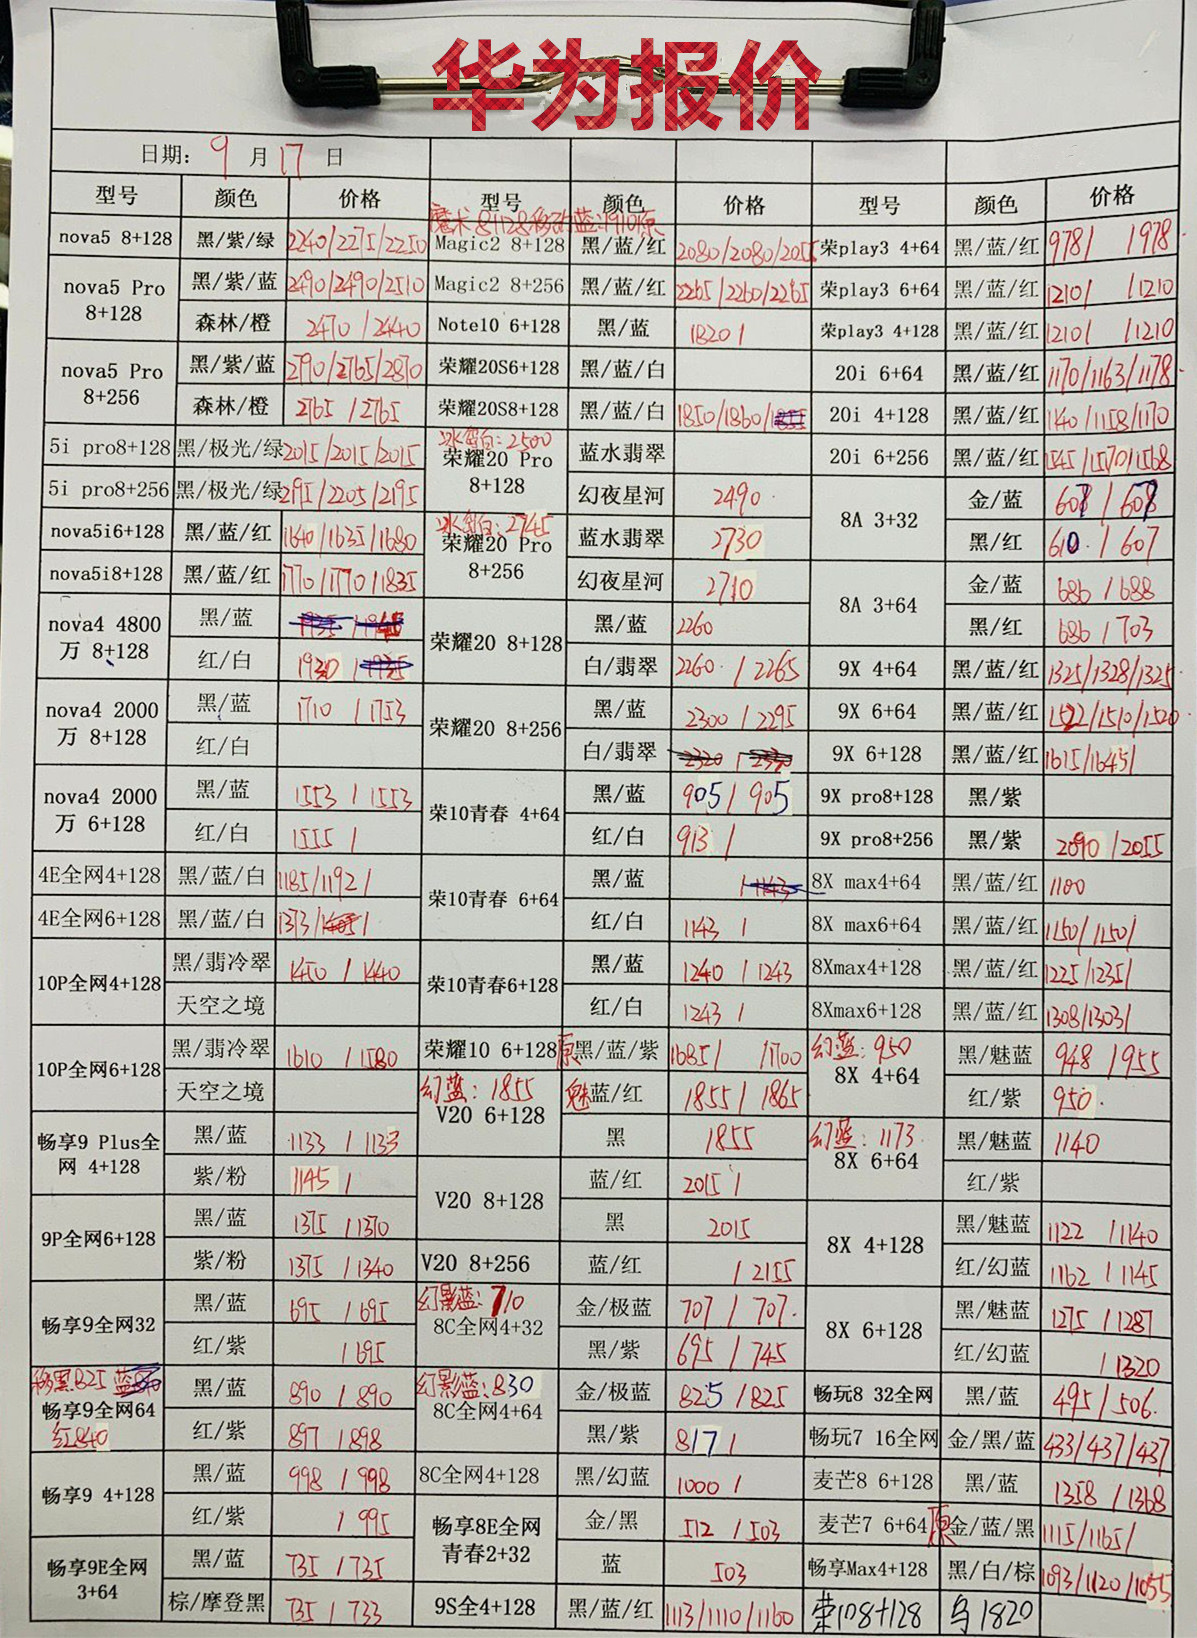 华为报价
日期: 9 月 17 日
型号 颜色 价格 型号 颜色 价格 型号 颜色 价格
魔术 8+128移动蓝:1910原
nova5 8+128 黑/紫/绿 2240/2275/2250 Magic2 8+128 黑/蓝/红 2080/2080/2055 荣play3 4+64 黑/蓝/红 978/ /978
nova5 Pro 8+128 黑/紫/蓝 2490/2490/2510 Magic2 8+256 黑/蓝/红 2265/2260/2265 荣play3 6+64 黑/蓝/红 1210/ /1210
森林/橙 2470/2440 Note10 6+128 黑/蓝 1820/ 荣play3 4+128 黑/蓝/红 1210/ /1210
nova5 Pro 8+256 黑/紫/蓝 2790/2765/2870 荣耀20S6+128 黑/蓝/白 20i 6+64 黑/蓝/红 1170/1163/1178
森林/橙 2765/2765 荣耀20S8+128 黑/蓝/白 1850/1860/ 20i 4+128 黑/蓝/红 1140/1158/1170
5i pro8+128 黑/极光/绿 2015/2015/2015 冰岛白:2500 荣耀20 Pro 8+128 蓝水翡翠 20i 6+256 黑/蓝/红 1545/1570/1568
5i pro8+256 黑/极光/绿 2195/2205/2195 幻夜星河 2490 8A 3+32 金/蓝 608/608
nova5i6+128 黑/蓝/红 1640/1635/1680 冰岛白:2745 荣耀20 Pro 8+256 蓝水翡翠 2730 黑/红 610/607
nova5i8+128 黑/蓝/红 1770/1770/1835 幻夜星河 2710 8A 3+64 金/蓝 686/688
nova4 4800万 8+128 黑/蓝 荣耀20 8+128 黑/蓝 2260 黑/红 686/703
红/白 1930/ 白/翡翠 2260/2265 9X 4+64 黑/蓝/红 1325/1328/1325
nova4 2000万 8+128 黑/蓝 1710/1753 荣耀20 8+256 黑/蓝 2300/2295 9X 6+64 黑/蓝/红 1522/1510/1520
红/白 白/翡翠 2320/2330 9X 6+128 黑/蓝/红 1615/1645/
nova4 2000万 6+128 黑/蓝 1553/1553 荣10青春 4+64 黑/蓝 905/905 9X pro8+128 黑/紫
红/白 1555/ 红/白 913/ 9X pro8+256 黑/紫 2090/2055
4E全网4+128 黑/蓝/白 1185/1192/ 荣10青春 6+64 黑/蓝 /1143 8X max4+64 黑/蓝/红 1100
4E全网6+128 黑/蓝/白 1373/1405/ 红/白 1143/ 8X max6+64 黑/蓝/红 1150/1150/
10P全网4+128 黑/翡冷翠 1450/1440 荣10青春6+128 黑/蓝 1240/1243 8Xmax4+128 黑/蓝/红 1225/1235/
天空之境 红/白 1243/ 8Xmax6+128 黑/蓝/红 1308/1303/
10P全网6+128 黑/翡冷翠 1610/1580 荣耀10 6+128原 黑/蓝/紫 1685/ /1700 幻蓝:950 8X 4+64 黑/魅蓝 948/955
天空之境 幻蓝:1855 V20 6+128 魅蓝/红 1855/1865 红/紫 950
畅享9 Plus全网 4+128 黑/蓝 1133/1133 黑 1855 幻蓝:1173 8X 6+64 黑/魅蓝 1140
紫/粉 1145/ V20 8+128 蓝/红 2015/ 红/紫
9P全网6+128 黑/蓝 1375/1370 黑 2015 8X 4+128 黑/魅蓝 1122/1140
紫/粉 1375/1340 V20 8+256 蓝/红 /2155 红/幻蓝 1162/1145
畅享9全网32 黑/蓝 695/695 幻影蓝:710 8C全网4+32 金/极蓝 707/707 8X 6+128 黑/魅蓝 1275/1287
红/紫 /695 黑/紫 695/745 红/幻蓝 /1320
移黑825 蓝 畅享9全网64 红840 黑/蓝 890/890 幻影蓝:830 8C全网4+64 金/极蓝 825/825 畅玩8 32全网 黑/蓝 495/506
红/紫 897/898 黑/紫 817/ 畅玩7 16全网 金/黑/蓝 433/437/437
畅享9 4+128 黑/蓝 998/998 8C全网4+128 黑/幻蓝 1000/ 麦芒8 6+128 黑/蓝 1358/1368
红/紫 /995 畅享8E全网青春2+32 金/黑 512/503 麦芒7 6+64原 金/蓝/黑 1115/1165/
畅享9E全网 3+64 黑/蓝 735/735 蓝 503 畅享Max4+128 黑/白/棕 1093/1120/1055
棕/摩登黑 735/733 9S全4+128 黑/蓝/红 1113/1110/1160 荣10 8+128 乌1820